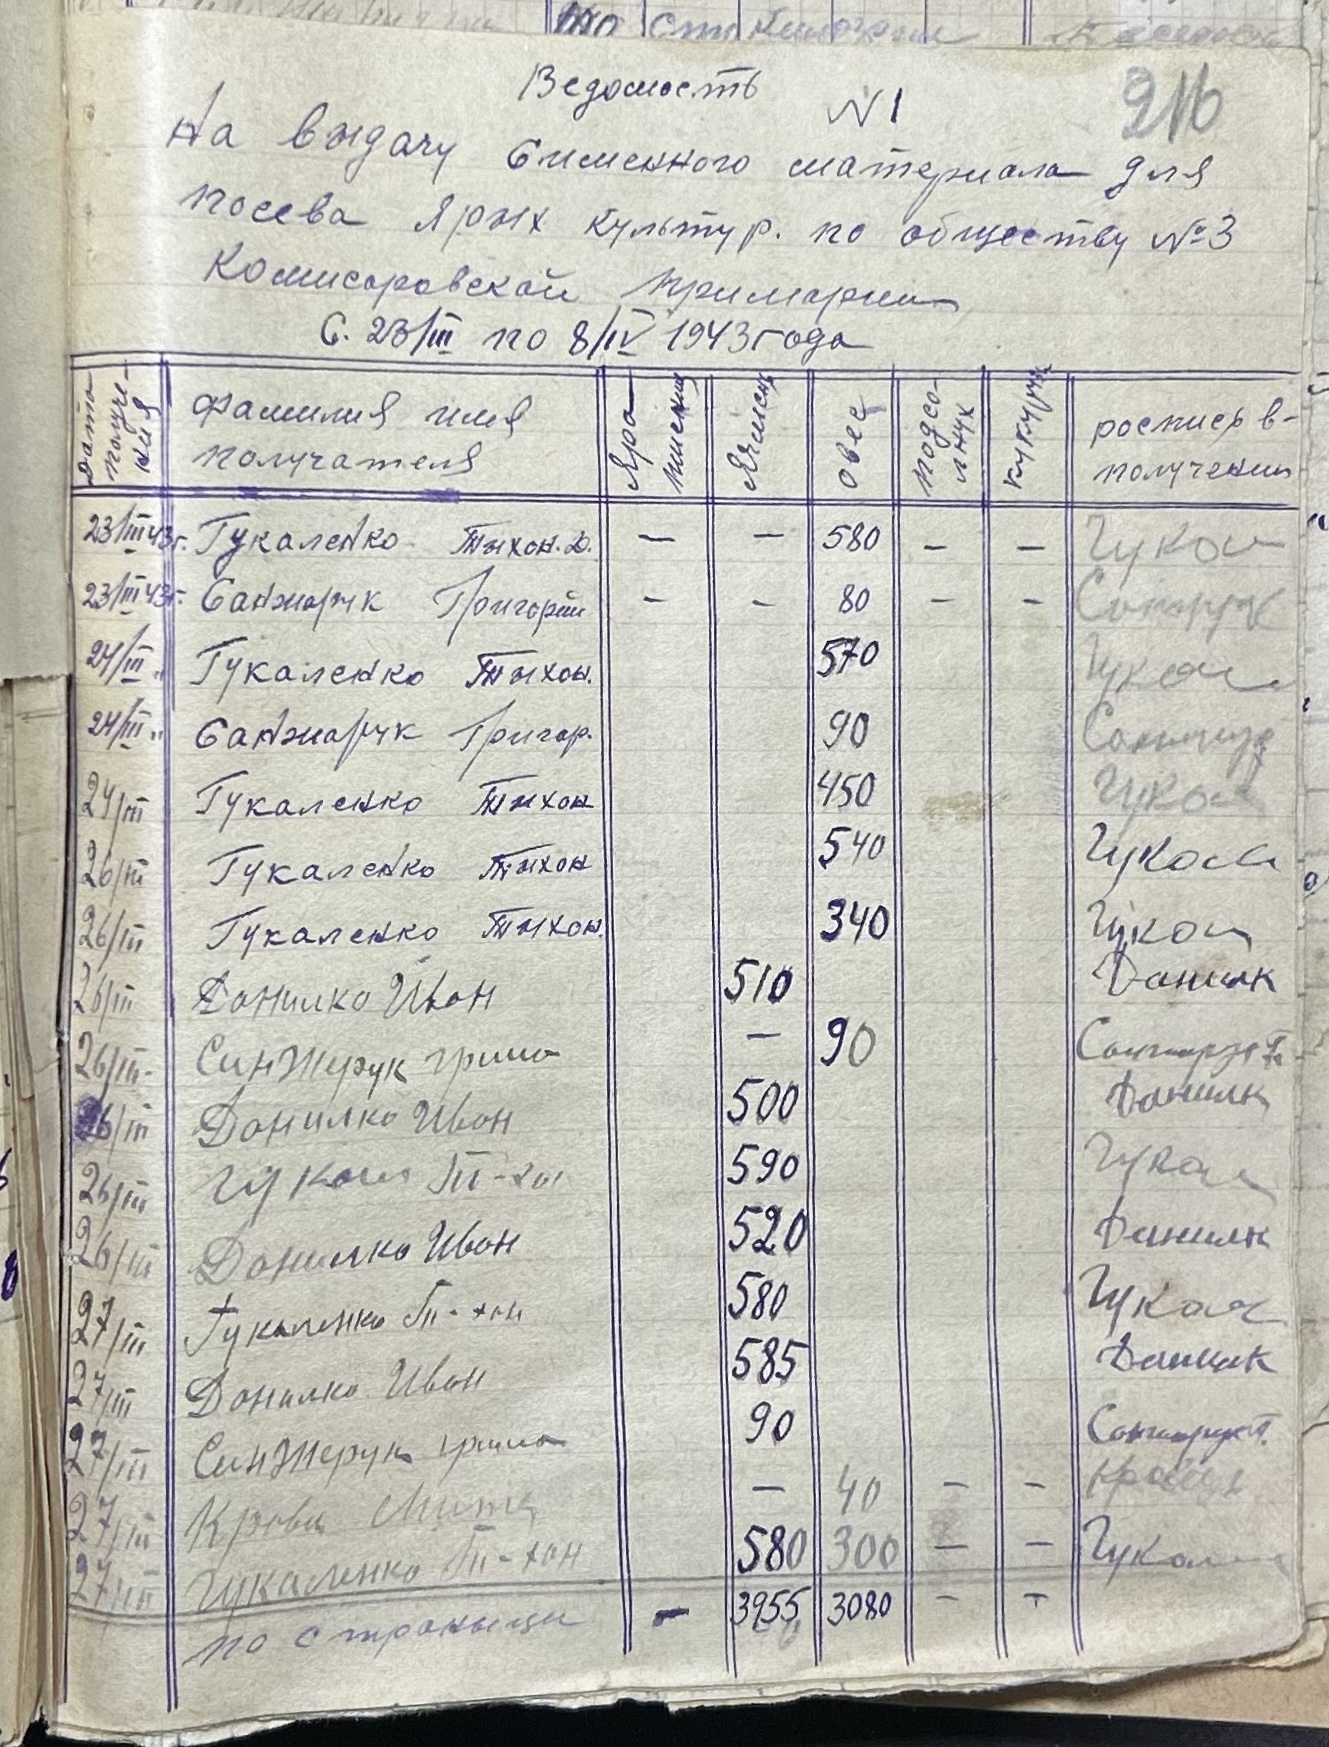 216
Ведомость №1
На выдачу Сименного материала для
посева Ярых культур. по обществу №3
Комисаровской примарии
С. 23/III по 8/IV 1943 года
Дата получения | Фамилия имя получателя | Яра пшениц | Ячмень | Овес | подсолнух | кукуруза | роспись в-получении
23/III 43г. Гукаленко Тыхон. Д. — — 580 — — Гукал
23/III 43г. Санжарук Григорий — — 80 — — Санжрук
24/III " Гукаленко Тыхон. 570 Гукал
24/III " Санжарук Григор. 90
24/III Гукаленко Тыхон 450 Гукал
26/III Гукаленко Тыхон 540 Гукал
26/III Гукаленко Тыхон. 340 Гукал
26/III Данилко Иван 510 Данилк
26/III Синжерук гриша — 90
26/III Данилко Иван 500 Данилк
26/III Гукал Ти-хон 590 Гукал
26/III Данилко Иван 520 Данилк
27/III Гукаленко Ти-хон 580 Гукал
27/III Данилко Иван 585 Данилк
27/III Синжерук гриша 90
27/III — 40 — —
27/III Гукаленко Ти-хон 580 300 — — Гукал
по страныци — 3955 3080 — —